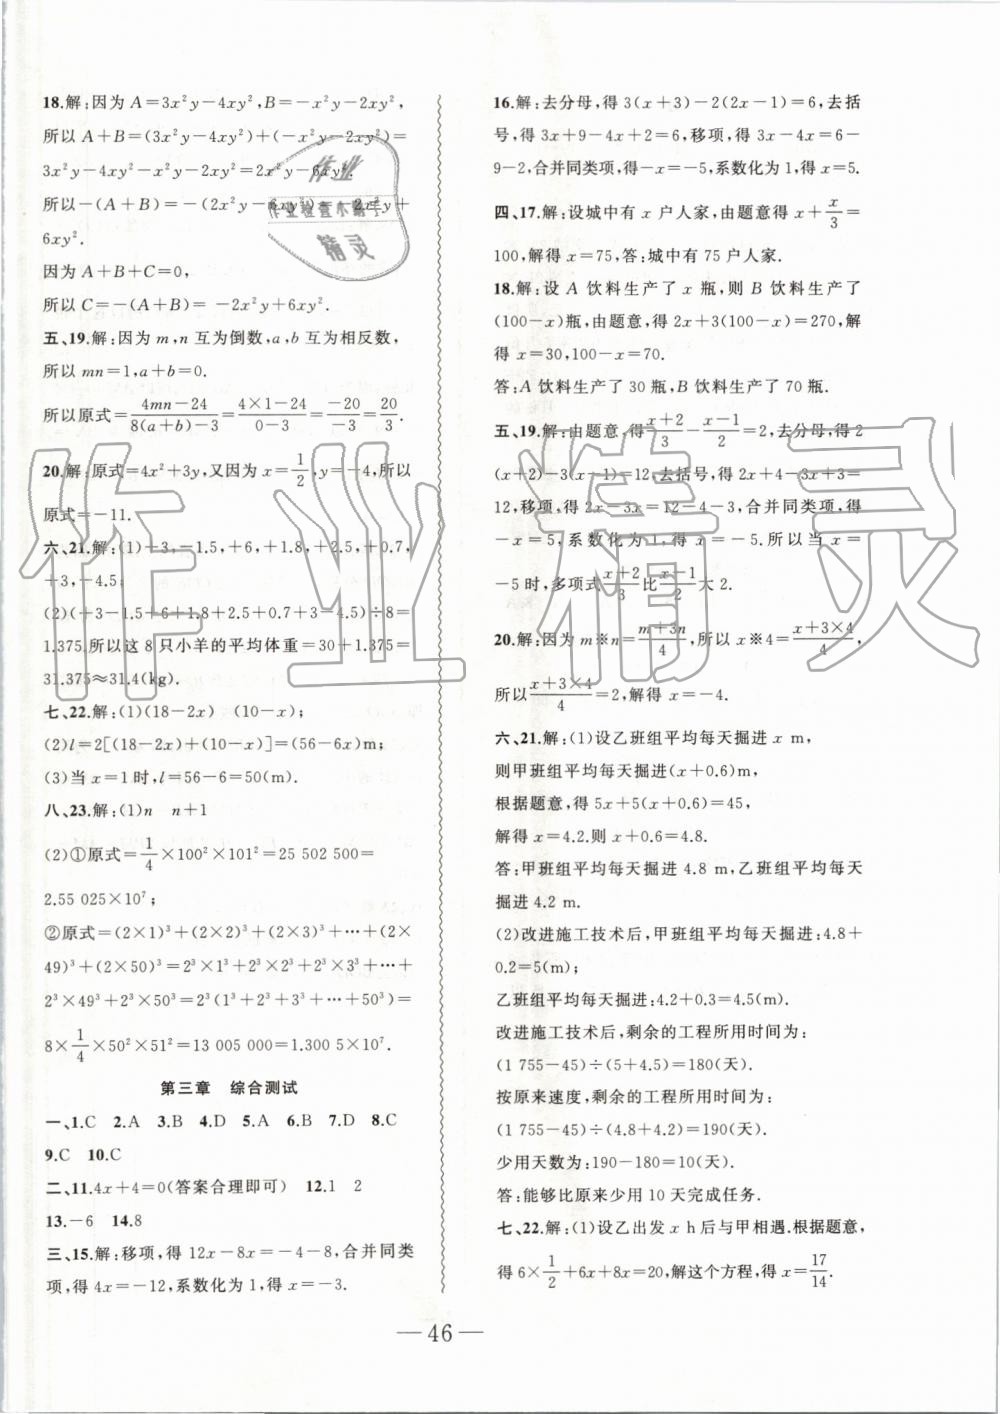 18.解:因为 A=3x²y-4xy²,B=-x²y-2xy²,
所以 A+B=(3x²y-4xy²)+(-x²y-2xy²)=
3x²y-4xy²-x²y-2xy²=2x²y-6xy².
所以-(A+B)=-(2x²y-6xy²)=-2x²y+
6xy².
因为 A+B+C=0,
所以 C=-(A+B)=-2x²y+6xy².
五、19.解:因为 m,n 互为倒数,a,b 互为相反数,
所以 mn=1,a+b=0.
所以原式=\frac{4mn-24}{8(a+b)-3}=\frac{4×1-24}{0-3}=\frac{-20}{-3}=\frac{20}{3}.
20.解:原式=4x²+3y,又因为 x=\frac{1}{2},y=-4,所以
原式=-11.
六、21.解:(1)+3,-1.5,+6,+1.8,+2.5,+0.7,
+3,-4.5;
(2)(+3-1.5+6+1.8+2.5+0.7+3-4.5)÷8=
1.375,所以这 8 只小羊的平均体重=30+1.375=
31.375≈31.4(kg).
七、22.解:(1)(18-2x) (10-x);
(2)l=2[(18-2x)+(10-x)]=(56-6x)m;
(3)当 x=1 时,l=56-6=50(m).
八、23.解:(1)n n+1
(2)①原式=\frac{1}{4}×100²×101²=25 502 500=
2.55 025×10⁷;
②原式=(2×1)³+(2×2)³+(2×3)³+…+(2×
49)³+(2×50)³=2³×1³+2³×2³+2³×3³+…+
2³×49³+2³×50³=2³(1³+2³+3³+…+50³)=
8×\frac{1}{4}×50²×51²=13 005 000=1.300 5×10⁷.
第三章 综合测试
一、1.C 2.A 3.B 4.D 5.A 6.B 7.D 8.C
9.C 10.C
二、11.4x+4=0(答案合理即可) 12.1 2
13.-6 14.8
三、15.解:移项,得 12x-8x=-4-8,合并同类
项,得 4x=-12,系数化为 1,得 x=-3.
16.解:去分母,得 3(x+3)-2(2x-1)=6,去括
号,得 3x+9-4x+2=6,移项,得 3x-4x=6-
9-2,合并同类项,得-x=-5,系数化为 1,得 x=5.
四、17.解:设城中有 x 户人家,由题意得 x+\frac{x}{3}=
100,解得 x=75,答:城中有 75 户人家.
18.解:设 A 饮料生产了 x 瓶,则 B 饮料生产了
(100-x)瓶,由题意,得 2x+3(100-x)=270,解
得 x=30,100-x=70.
答:A 饮料生产了 30 瓶,B 饮料生产了 70 瓶.
五、19.解:由题意,得\frac{x+2}{3}-\frac{x-1}{2}=2,去分母,得 2
(x+2)-3(x-1)=12,去括号,得 2x+4-3x+3=
12,移项,得 2x-3x=12-4-3,合并同类项,得
-x=5,系数化为 1,得 x=-5.所以当 x=
-5 时,多项式\frac{x+2}{3}比\frac{x-1}{2}大 2.
20.解:因为 m※n=\frac{m+3n}{4},所以 x※4=\frac{x+3×4}{4},
所以\frac{x+3×4}{4}=2,解得 x=-4.
六、21.解:(1)设乙班组平均每天掘进 x m,
则甲班组平均每天掘进(x+0.6)m,
根据题意,得 5x+5(x+0.6)=45,
解得 x=4.2.则 x+0.6=4.8.
答:甲班组平均每天掘进 4.8 m,乙班组平均每天
掘进 4.2 m.
(2)改进施工技术后,甲班组平均每天掘进:4.8+
0.2=5(m).
乙班组平均每天掘进:4.2+0.3=4.5(m).
改进施工技术后,剩余的工程所用时间为:
(1 755-45)÷(5+4.5)=180(天).
按原来速度,剩余的工程所用时间为:
(1 755-45)÷(4.8+4.2)=190(天).
少用天数为:190-180=10(天).
答:能够比原来少用 10 天完成任务.
七、22.解:(1)设乙出发 x h后与甲相遇.根据题意,
得 6×\frac{1}{2}+6x+8x=20,解这个方程,得 x=\frac{17}{14}.
— 46 —
作业
作业检查小帮手
精灵
作业精灵